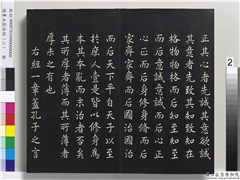 正其心者先誠其意欲誠
其意者先致其知致知在
格物物格而后知至知至
而后意誠意誠而后心正
心正而后身修身修而后
家齊家齊而后國治國治
而后天下平自天子以至
於庶人壹是皆以修身為
本其本亂而末治者否矣
其所厚者薄而其所薄者
厚未之有也
右經一章蓋孔子之言
2